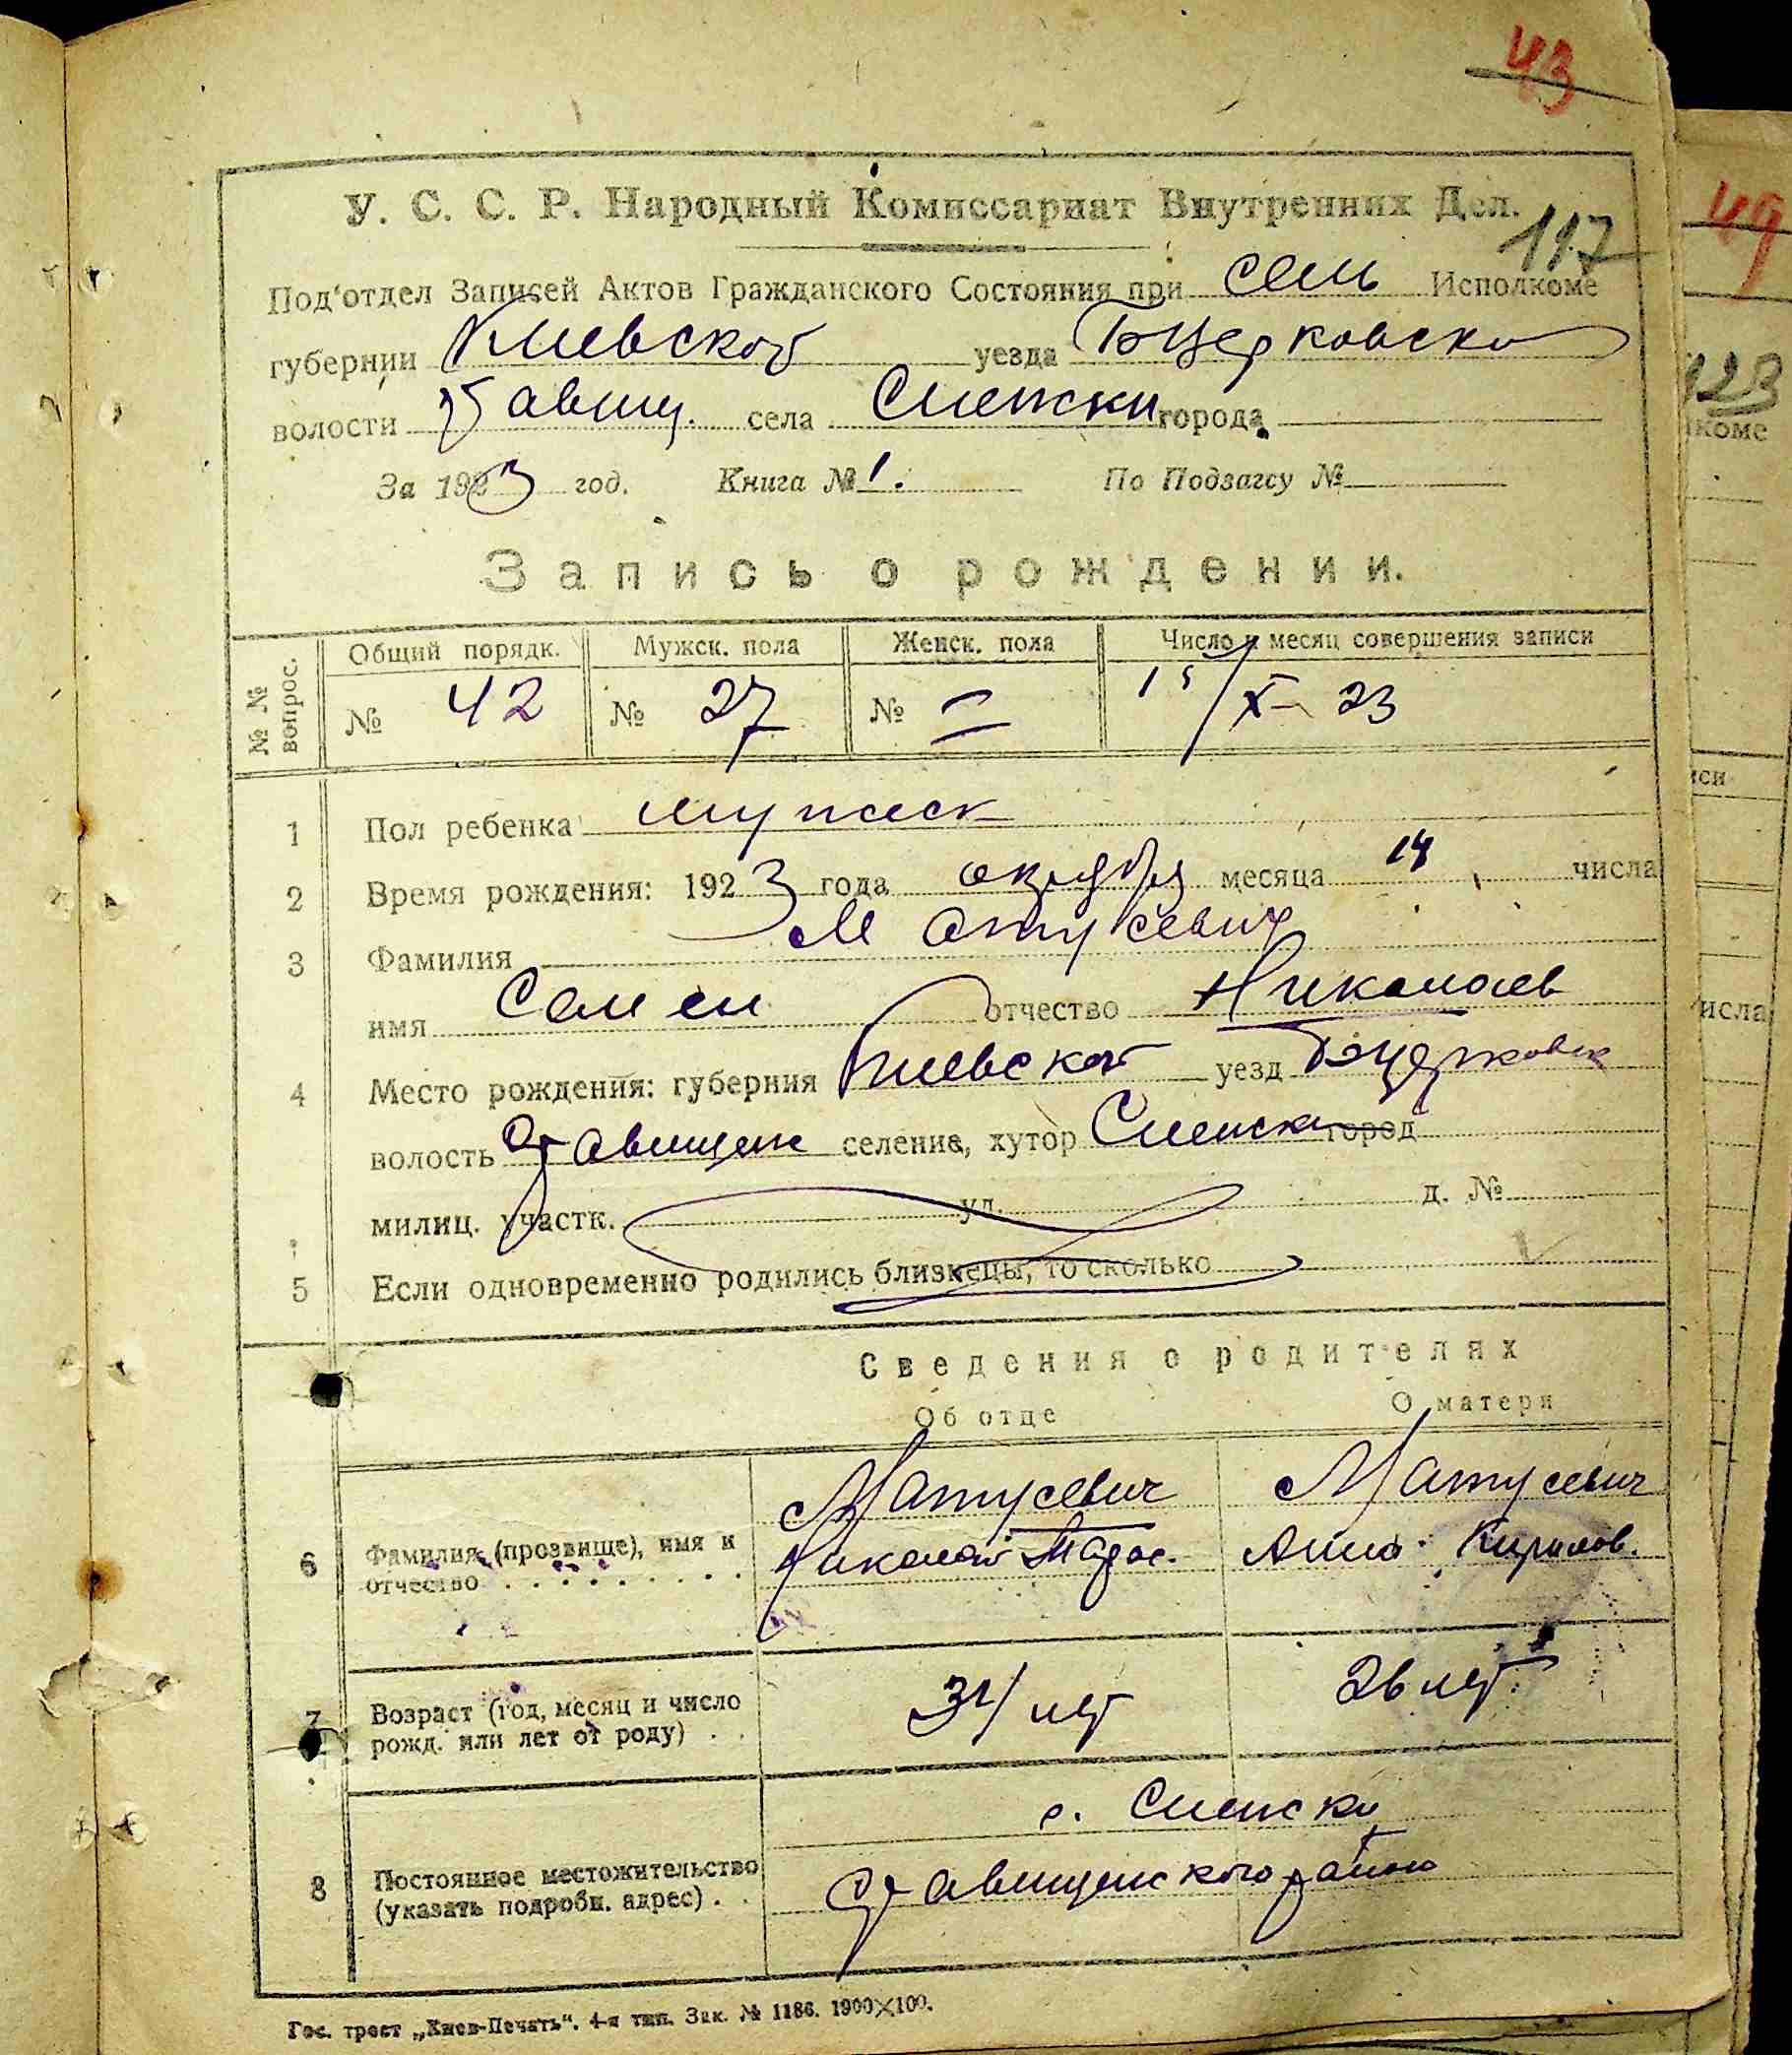 43
У. С. С. Р. Народный Комиссариат Внутренних Дел.
117
Под'отдел Записей Актов Гражданского Состояния при сель Исполкоме
губернии Киевской уезда БЦерковско
волости Ставищ. села Снежки города
За 1923 год. Книга № 1. По Подзагсу №
Запись о рождении.
№ № вопрос.
Общий порядк. Мужск. пола Женск. пола Число и месяц совершения записи
№ 42 № 27 № — 15/X-23
1 Пол ребенка мужеск
2 Время рождения: 1923 года октября месяца 14 числа
3 Фамилия Матусевич
имя Семен отчество Николаев
4 Место рождения: губерния Киевской уезд БЦерковск
волость Ставищен селение, хутор Снежки город
милиц. участк. ул. д. №
5 Если одновременно родились близнецы, то сколько
Сведения о родителях
Об отце О матери
Матусевич Матусевич
6 Фамилия (прозвище), имя и Николай Тарас. Анна Кирилов.
отчество
7 Возраст (год, месяц и число 34 лет 26 лет
рожд. или лет от роду)
с. Снежки
8 Постоянное местожительство Ставищенского района
(указать подробн. адрес)
Гос. трест „Киев-Печать“. 4-я тип. Зак. № 1186. 1900×100.
49
123
коме
иси
исла